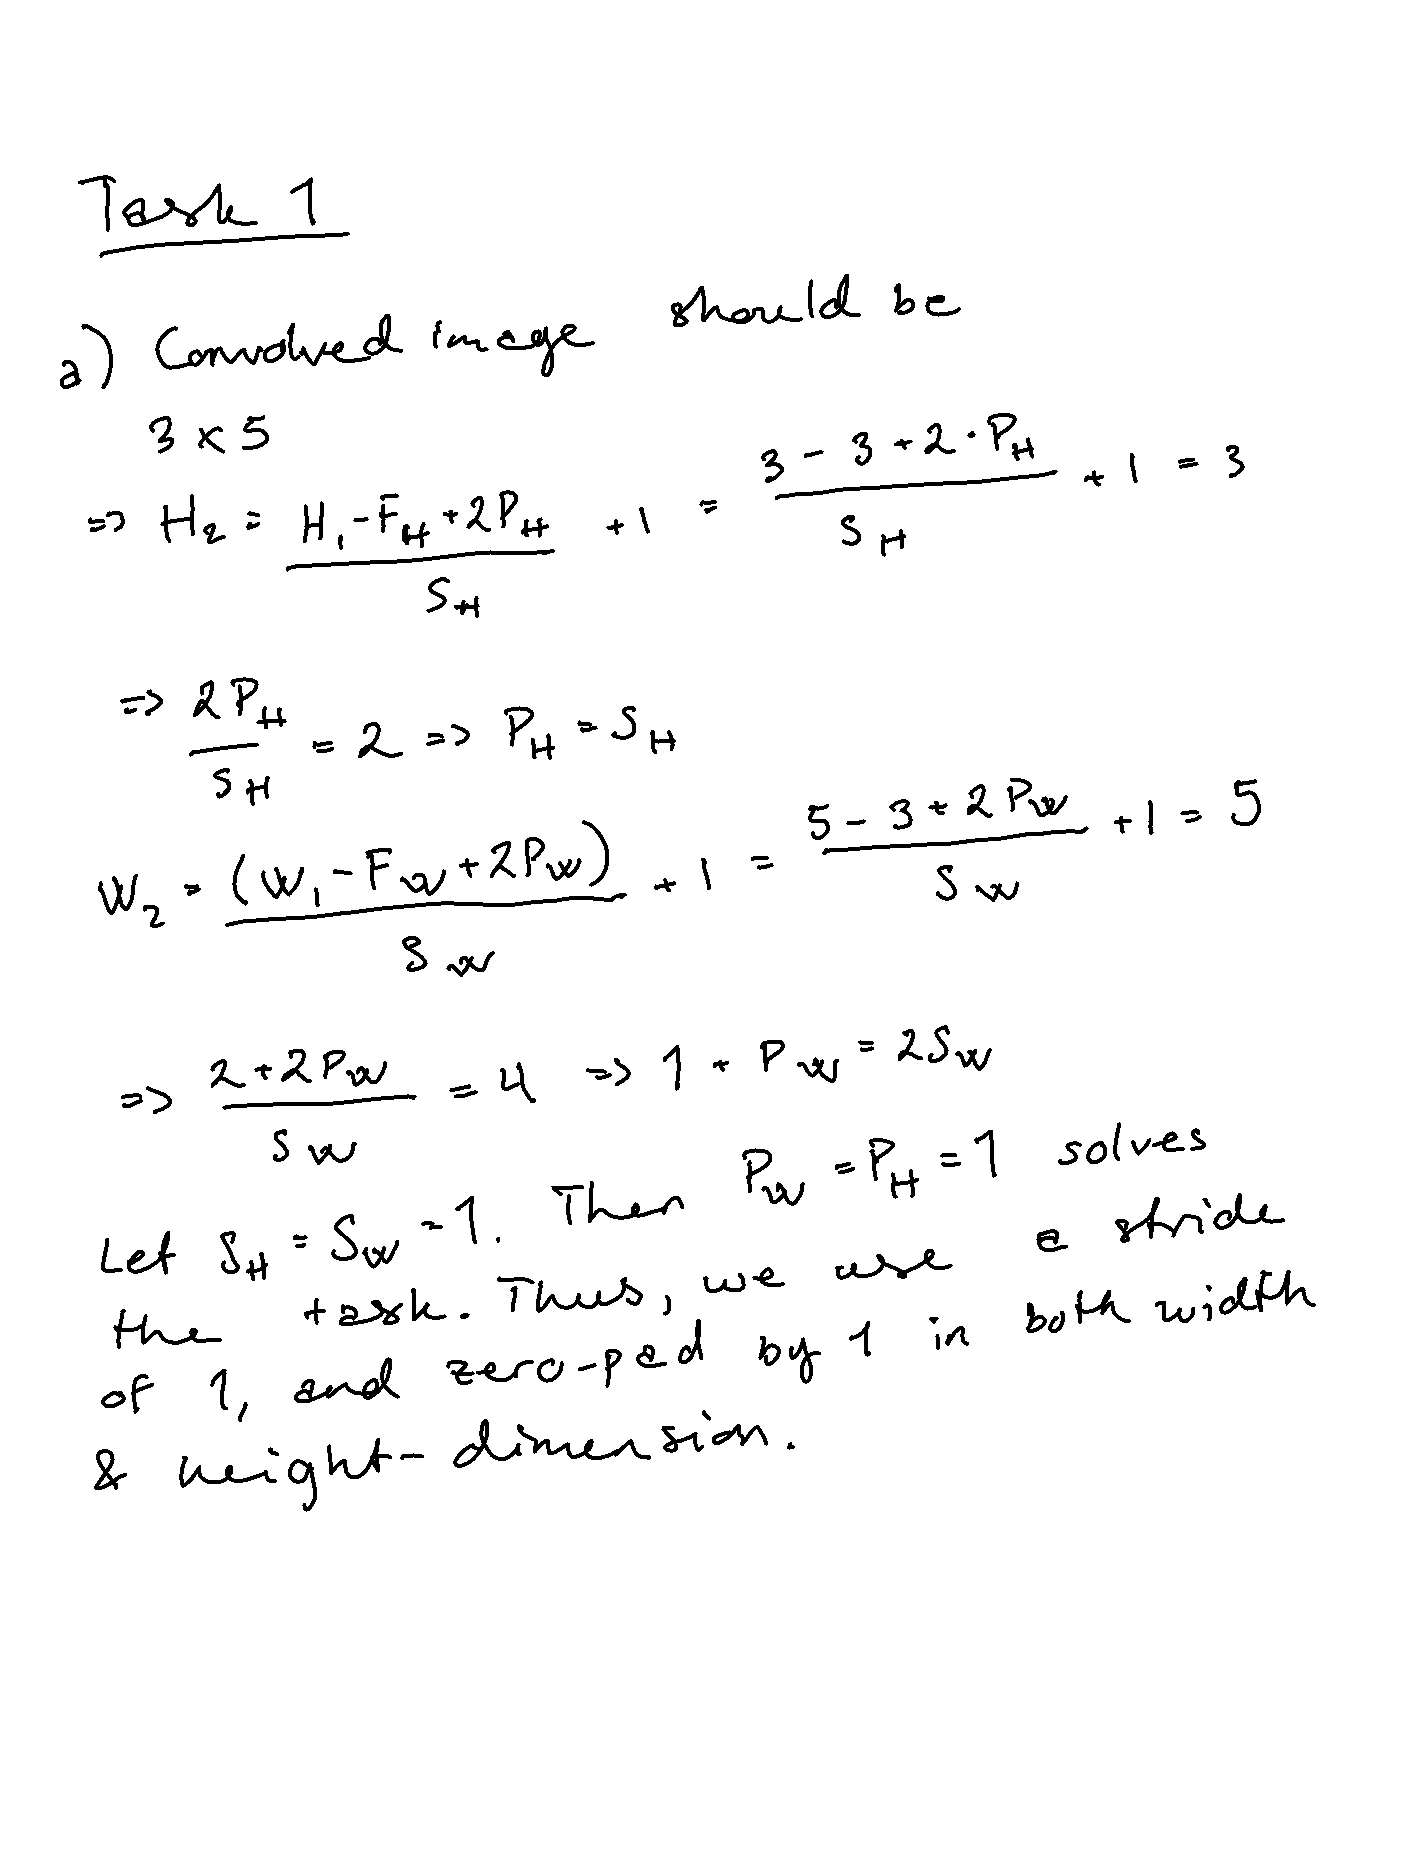 Task 1
a) Convolved image should be
3 x 5
=> H₂ = (H₁ - F_H + 2P_H) / S_H + 1 = (3 - 3 + 2 · P_H) / S_H + 1 = 3
=> 2P_H / S_H = 2 => P_H = S_H
W₂ = (W₁ - F_W + 2P_W) / S_W + 1 = (5 - 3 + 2P_W) / S_W + 1 = 5
=> (2 + 2P_W) / S_W = 4 => 1 + P_W = 2S_W
Let S_H = S_W = 1. Then P_W = P_H = 1 solves
the task. Thus, we use a stride
of 1, and zero-pad by 1 in both width
& height-dimension.